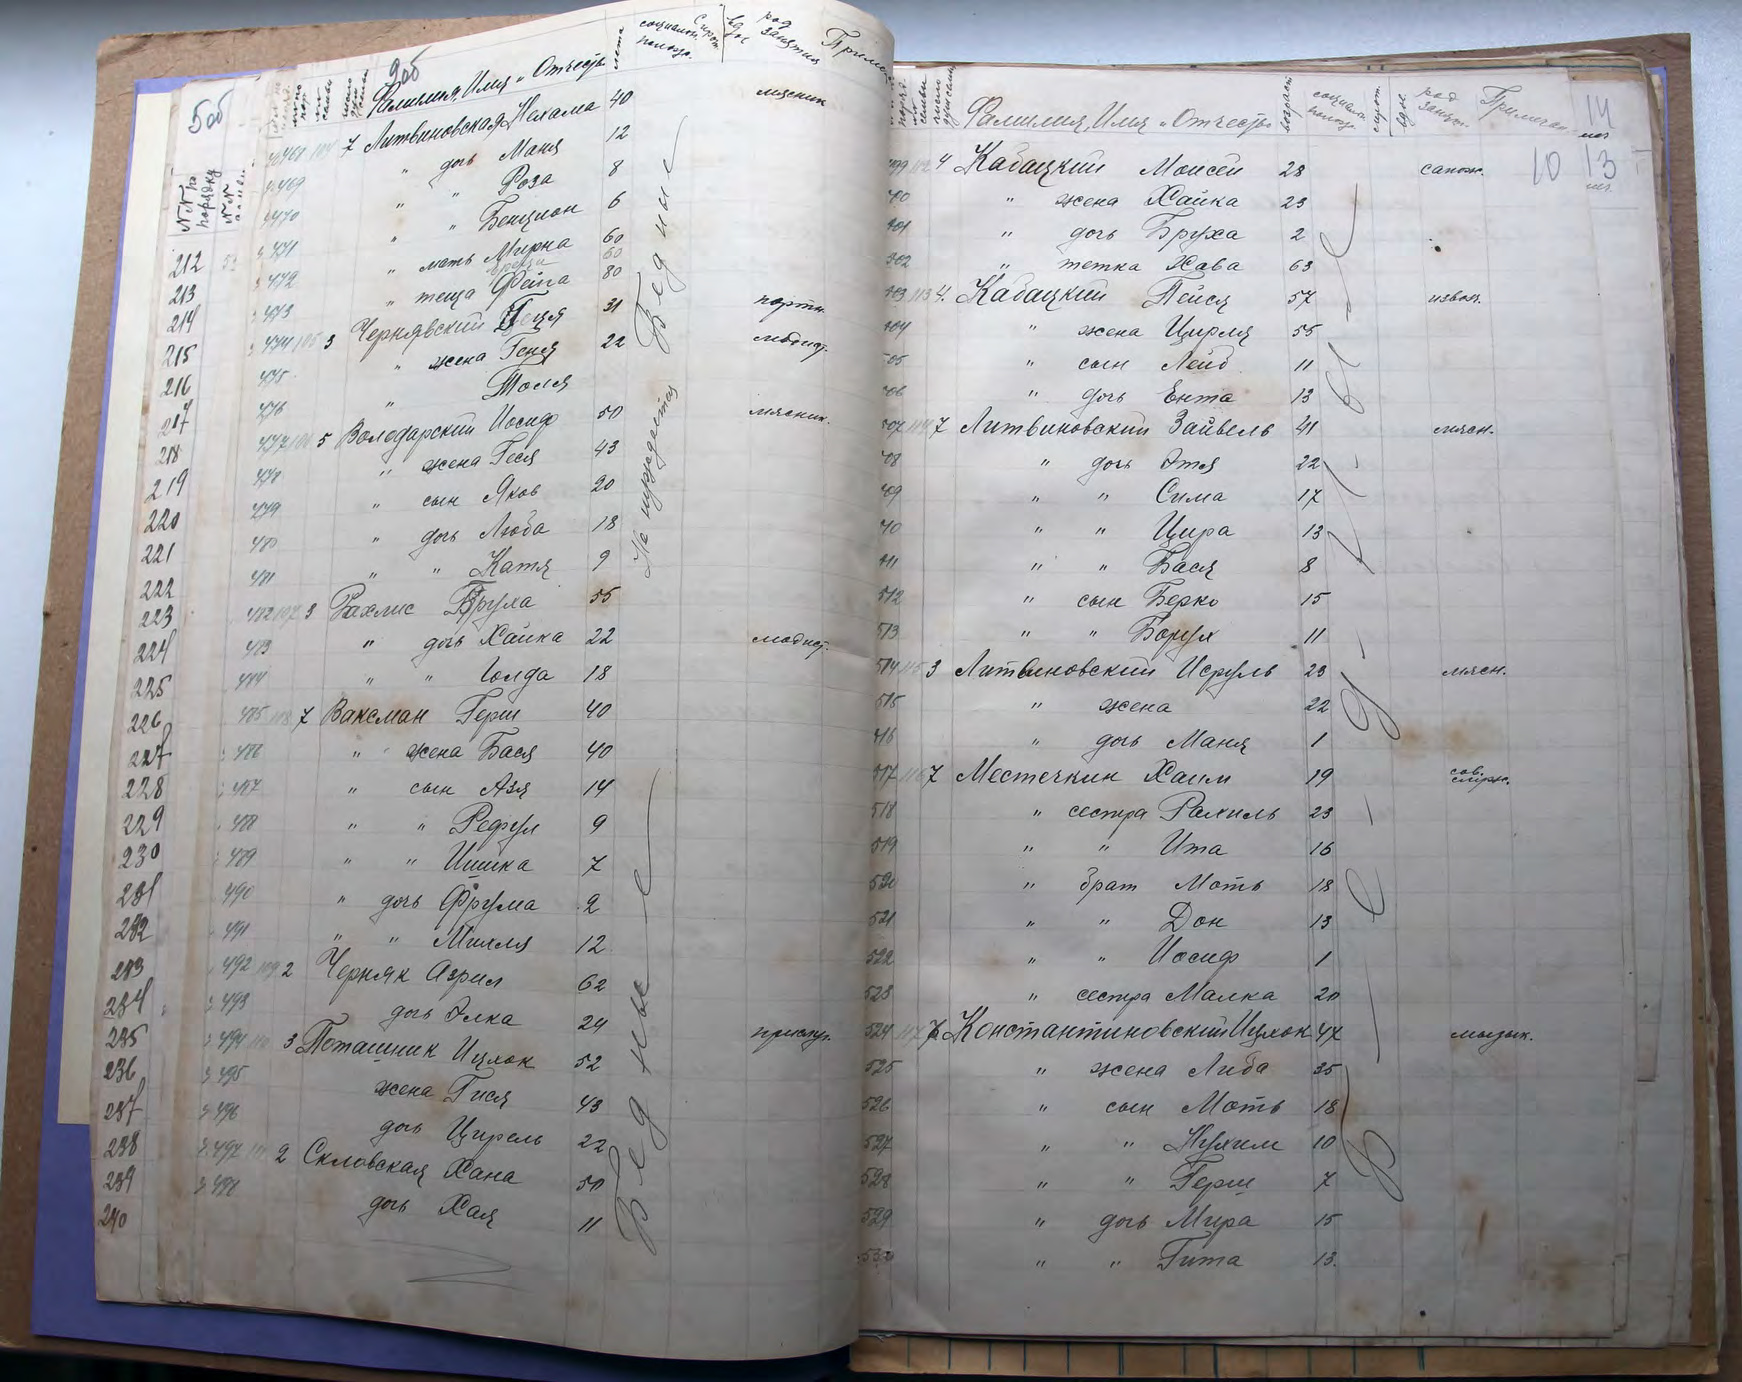 5об
9об
Фамилия, Имя и Отчеств.
лета
социальн. полож.
Сирот.
вдов
род занятия
Примеч
№№ по порядку
212 468 7 Литвиновская Нехама 40 мясник
213 469 " дочь Маня 12
214 470 " " Роза 8
215 471 " " Бенцион 6
216 472 " мать Мирка 60
217 473 " теща Фейга 80
218 474 105 3 Чернявский Геця 31 портн.
219 475 " жена Геня 22 модист.
220 476 " Толя
221 477 106 5 Володарский Иосиф 50 мясник.
222 478 " жена Геся 43
223 479 " сын Яков 20
224 480 " дочь Люба 18
225 481 " " Катя 9
226 482 107 3 Рахлис Бруха 55
227 483 " дочь Хайка 22 модист.
228 484 " " Голда 18
229 485 108 7 Ваксман Герш 40
230 486 " жена Бася 40
231 487 " сын Азя 14
232 488 " " Рефул 9
233 489 " " Ишика 7
234 490 " дочь Фрума 2
235 491 " " Михля 12
236 492 109 2 Черняк Азрил 62
237 493 дочь Элка 24
238 494 110 3 Поташник Ицхок 52 прислуг.
239 495 жена Гися 43
240 496 дочь Цирель 22
497 111 2 Скловская Хана 50
498 дочь Хая 11
Не нуждается Бедные
Бедные
Фамилия, Имя и Отчеств.
возраст
социальн. полож.
сирот.
вдов.
род занят.
Примечан.
14
10 13
499 112 4 Кабацкий Моисей 28 сапож.
500 " жена Хайка 23
501 " дочь Бруха 2
502 " тетка Хава 63
503 113 4 Кабацкий Пейся 57 извоз.
504 " жена Цирля 55
505 " сын Лейб 11
506 " дочь Ента 13
507 114 7 Литвиновский Зайвель 41 мясн.
508 " дочь Этя 22
509 " " Сима 17
510 " " Цира 13
511 " " Бася 8
512 " сын Берко 15
513 " " Борух 11
514 115 3 Литвиновский Исруль 23 мясн.
515 " жена 22
516 " дочь Маня 1
517 116 7 Местечкин Хаим 19 сов. служ.
518 " сестра Рахиль 23
519 " " Ита 16
520 " брат Моть 18
521 " " Дон 13
522 " " Иосиф 1
523 " сестра Малка 20
524 117 7 Константиновский Ицхок 47 музык.
525 " жена Либа 35
526 " сын Моть 18
527 " " Нухим 10
528 " " Герш 7
529 " дочь Мира 15
530 " " Гита 13.
Б-е-д-н-ы-е